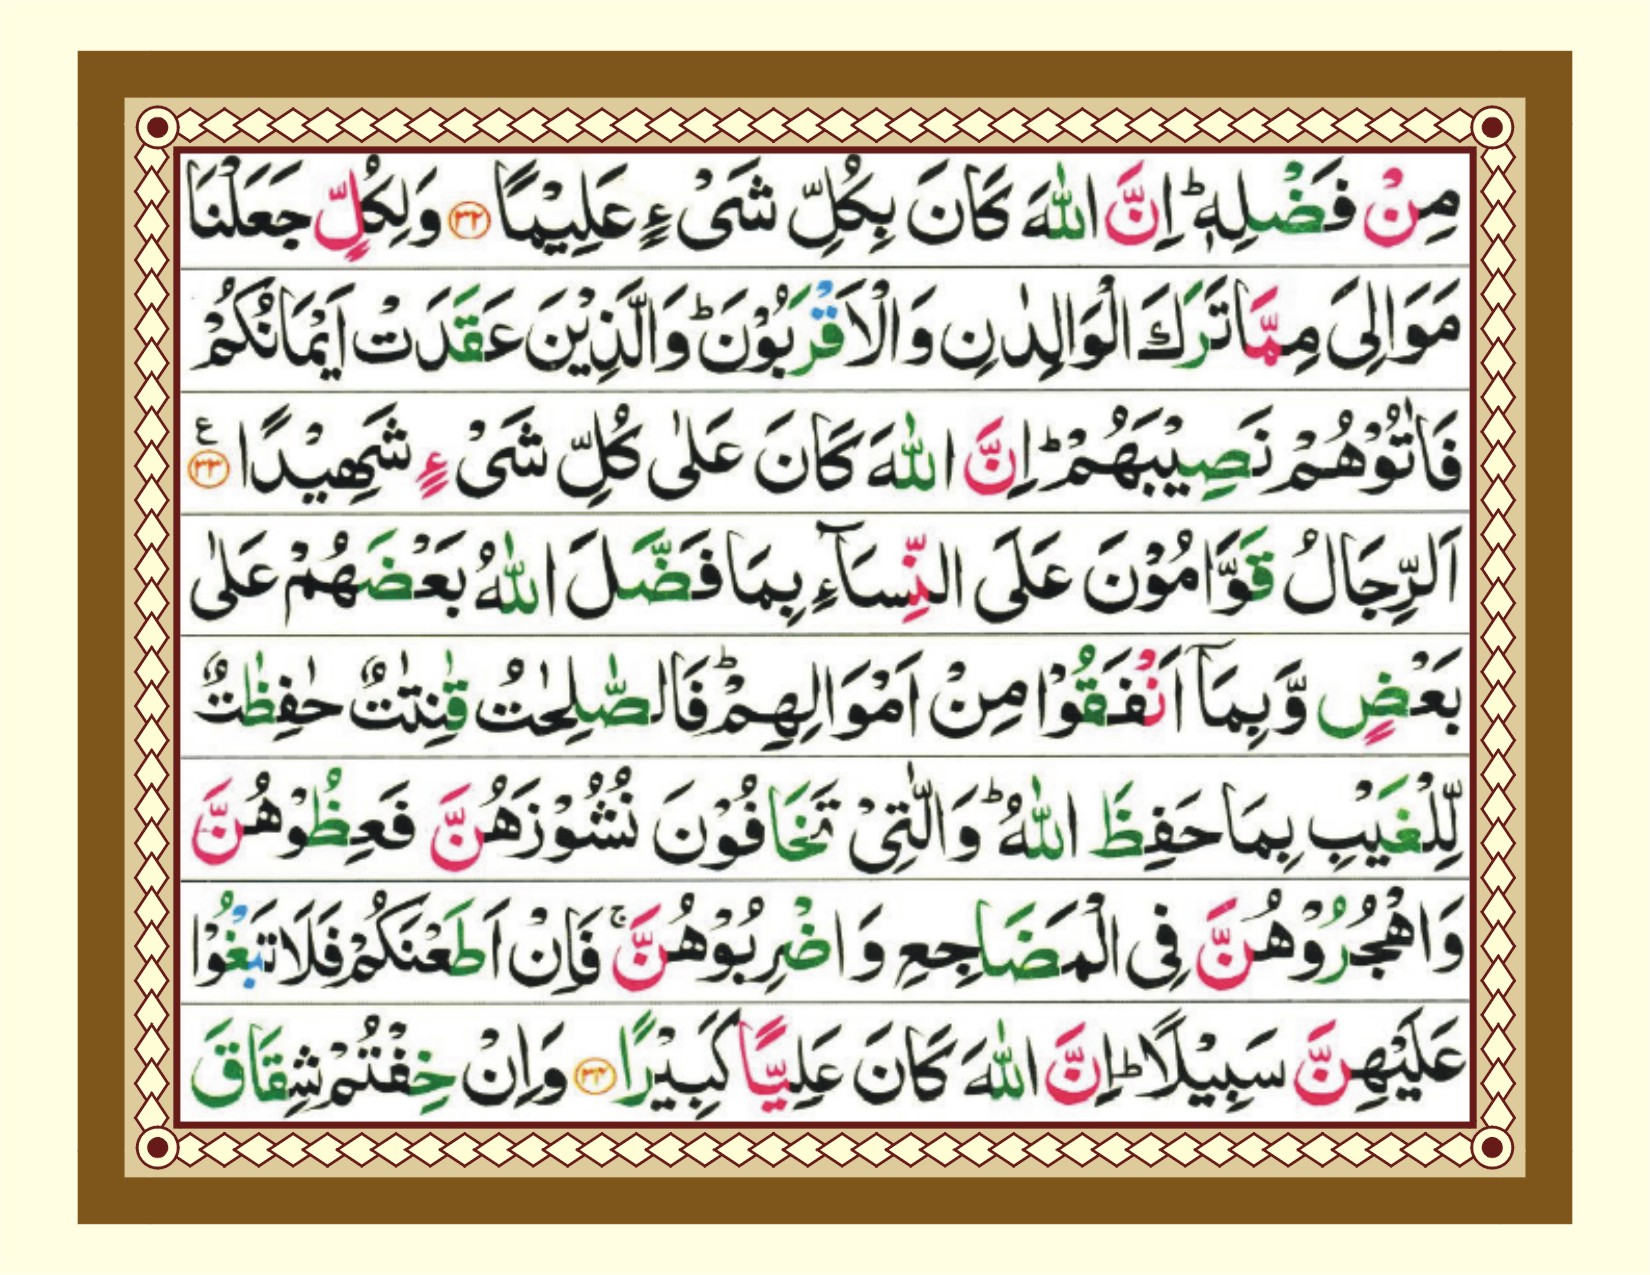 مِنْ فَضْلِهٖ ؕ اِنَّ اللّٰهَ كَانَ بِكُلِّ شَیْءٍ عَلِیْمًا ۝۳۲ وَلِكُلٍّ جَعَلْنَا
مَوَالِیَ مِمَّا تَرَكَ الْوَالِدٰنِ وَالْاَقْرَبُوْنَ ؕ وَالَّذِیْنَ عَقَدَتْ اَیْمَانُكُمْ
فَاٰتُوْهُمْ نَصِیْبَهُمْ ؕ اِنَّ اللّٰهَ كَانَ عَلٰی كُلِّ شَیْءٍ شَهِیْدًا ۝۳۳ ع
اَلرِّجَالُ قَوَّامُوْنَ عَلَی النِّسَآءِ بِمَا فَضَّلَ اللّٰهُ بَعْضَهُمْ عَلٰی
بَعْضٍ وَّبِمَاۤ اَنْفَقُوْا مِنْ اَمْوَالِهِمْ ؕ فَالصّٰلِحٰتُ قٰنِتٰتٌ حٰفِظٰتٌ
لِّلْغَیْبِ بِمَا حَفِظَ اللّٰهُ ؕ وَالّٰتِیْ تَخَافُوْنَ نُشُوْزَهُنَّ فَعِظُوْهُنَّ
وَاهْجُرُوْهُنَّ فِی الْمَضَاجِعِ وَاضْرِبُوْهُنَّ ۚ فَاِنْ اَطَعْنَكُمْ فَلَا تَبْغُوْا
عَلَیْهِنَّ سَبِیْلًا ؕ اِنَّ اللّٰهَ كَانَ عَلِیًّا كَبِیْرًا ۝۳۴ وَاِنْ خِفْتُمْ شِقَاقَ